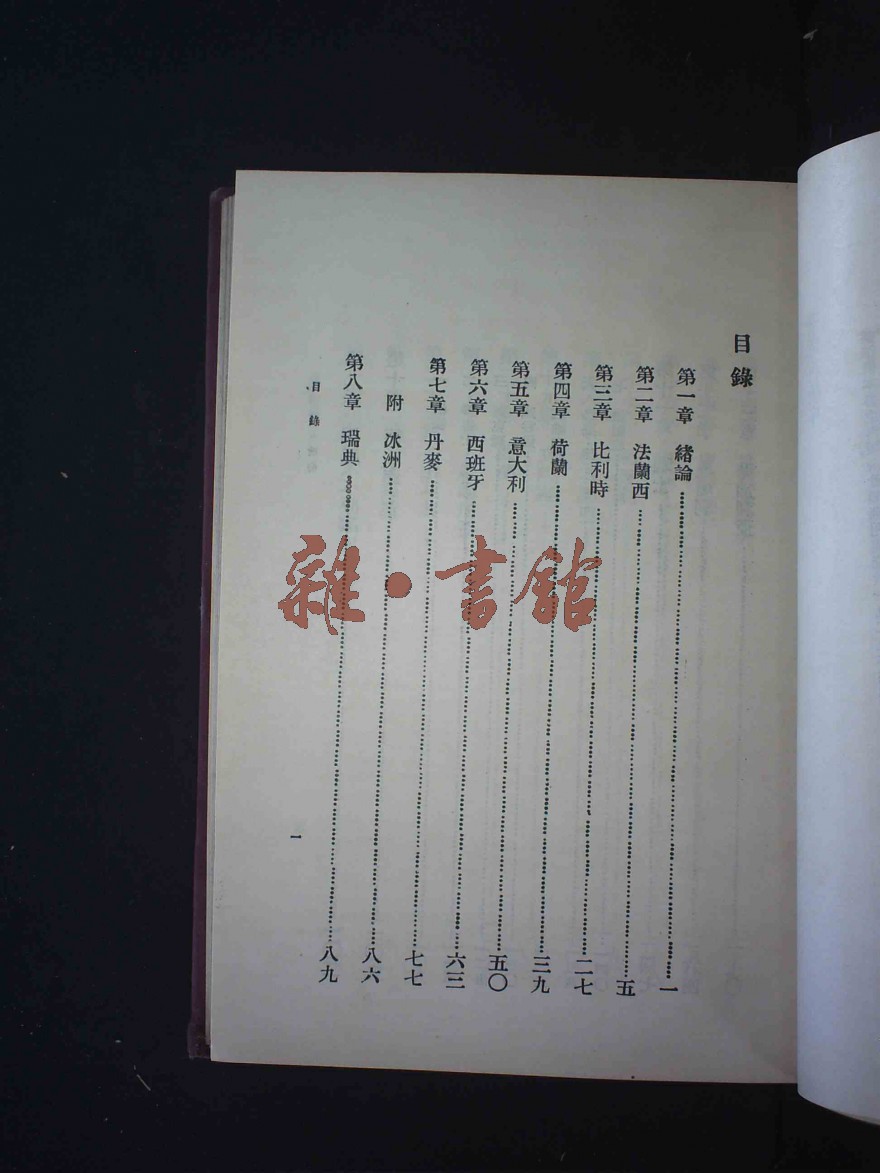 目錄
第一章 緒論………一
第二章 法蘭西………五
第三章 比利時………二七
第四章 荷蘭………三九
第五章 意大利………五〇
第六章 西班牙………六三
第七章 丹麥………七七
附 冰洲………八六
第八章 瑞典………八九
目錄
一
雜·書館